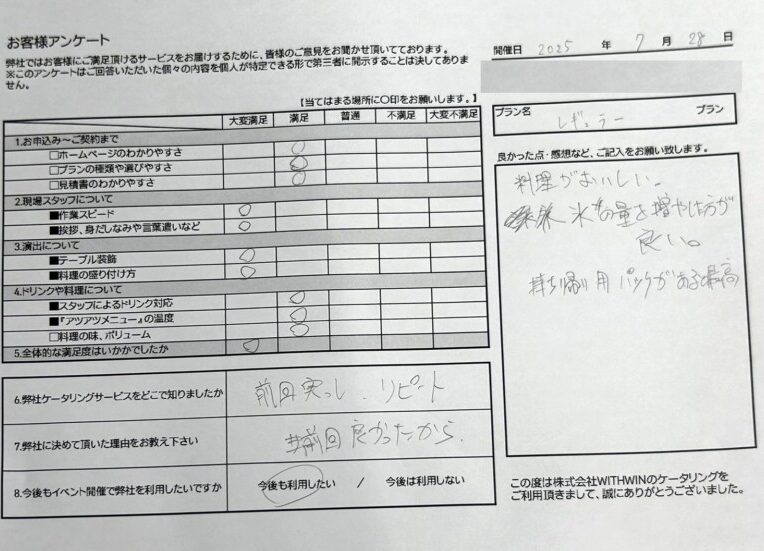 お客様アンケート
弊社ではお客様にご満足頂けるサービスをお届けするために、皆様のご意見をお聞かせ頂いております。
※このアンケートはご回答いただいた個々の内容を個人が特定できる形で第三者に開示することは決してありま
せん。
【当てはまる場所に〇印をお願いします。】
大変満足 満足 普通 不満足 大変不満足
1.お申込み～ご契約まで
□ホームページのわかりやすさ
□プランの種類や選びやすさ
□見積書のわかりやすさ
2.現場スタッフについて
■作業スピード
■挨拶、身だしなみや言葉遣いなど
3.演出について
■テーブル装飾
■料理の盛り付け方
4.ドリンクや料理について
■スタッフによるドリンク対応
■『アツアツメニュー』の温度
□料理の味、ボリューム
5.全体的な満足度はいかがでしたか
6.弊社ケータリングサービスをどこで知りましたか
前回実っし、リピート
7.弊社に決めて頂いた理由をお教え下さい
前回良かったから.
8.今後もイベント開催で弊社を利用したいですか
今後も利用したい / 今後は利用しない
開催日 2025 年 7 月 28 日
プラン名 レギュラー プラン
良かった点・感想など、ご記入をお願い致します。
料理がおいしい。
氷の量を増やした方が
良い。
持ち帰り用パックがある最高
この度は株式会社WITHWINのケータリングを
ご利用頂きまして、誠にありがとうございました。